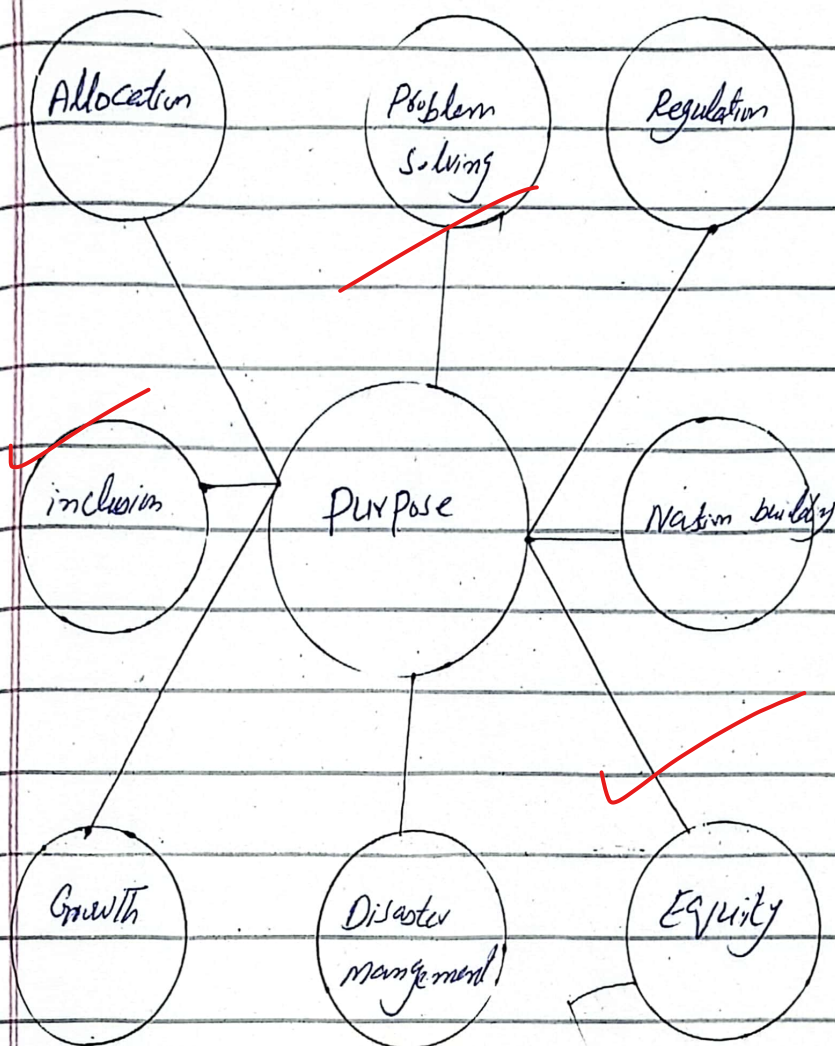 Allocation
Problem
solving
Regulation
inclusion
Purpose
Nation building
Growth
Disaster
mangement
Equity